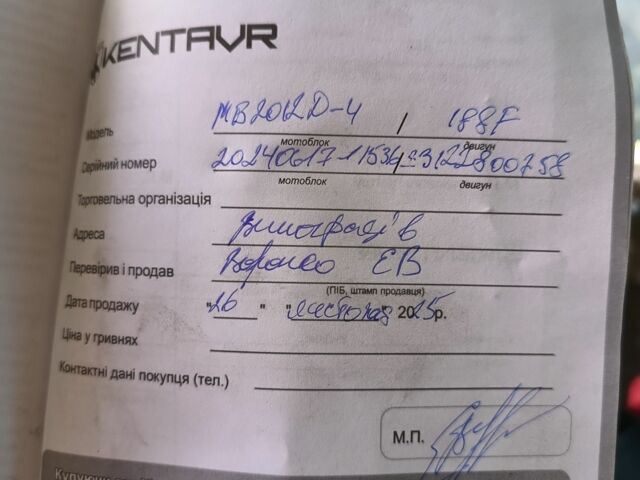 KENTAVR
Модель МВ2012D-4 / 188F
мотоблок двигун
Серійний номер 20240617-11534 /
мотоблок двигун
Торговельна організація
Адреса Виноградів
Перевірив і продав ЕВ
(ПІБ, штамп продавця)
Дата продажу "26" "листопад" 2025р.
Ціна у гривнях
Контактні дані покупця (тел.)
М.П.